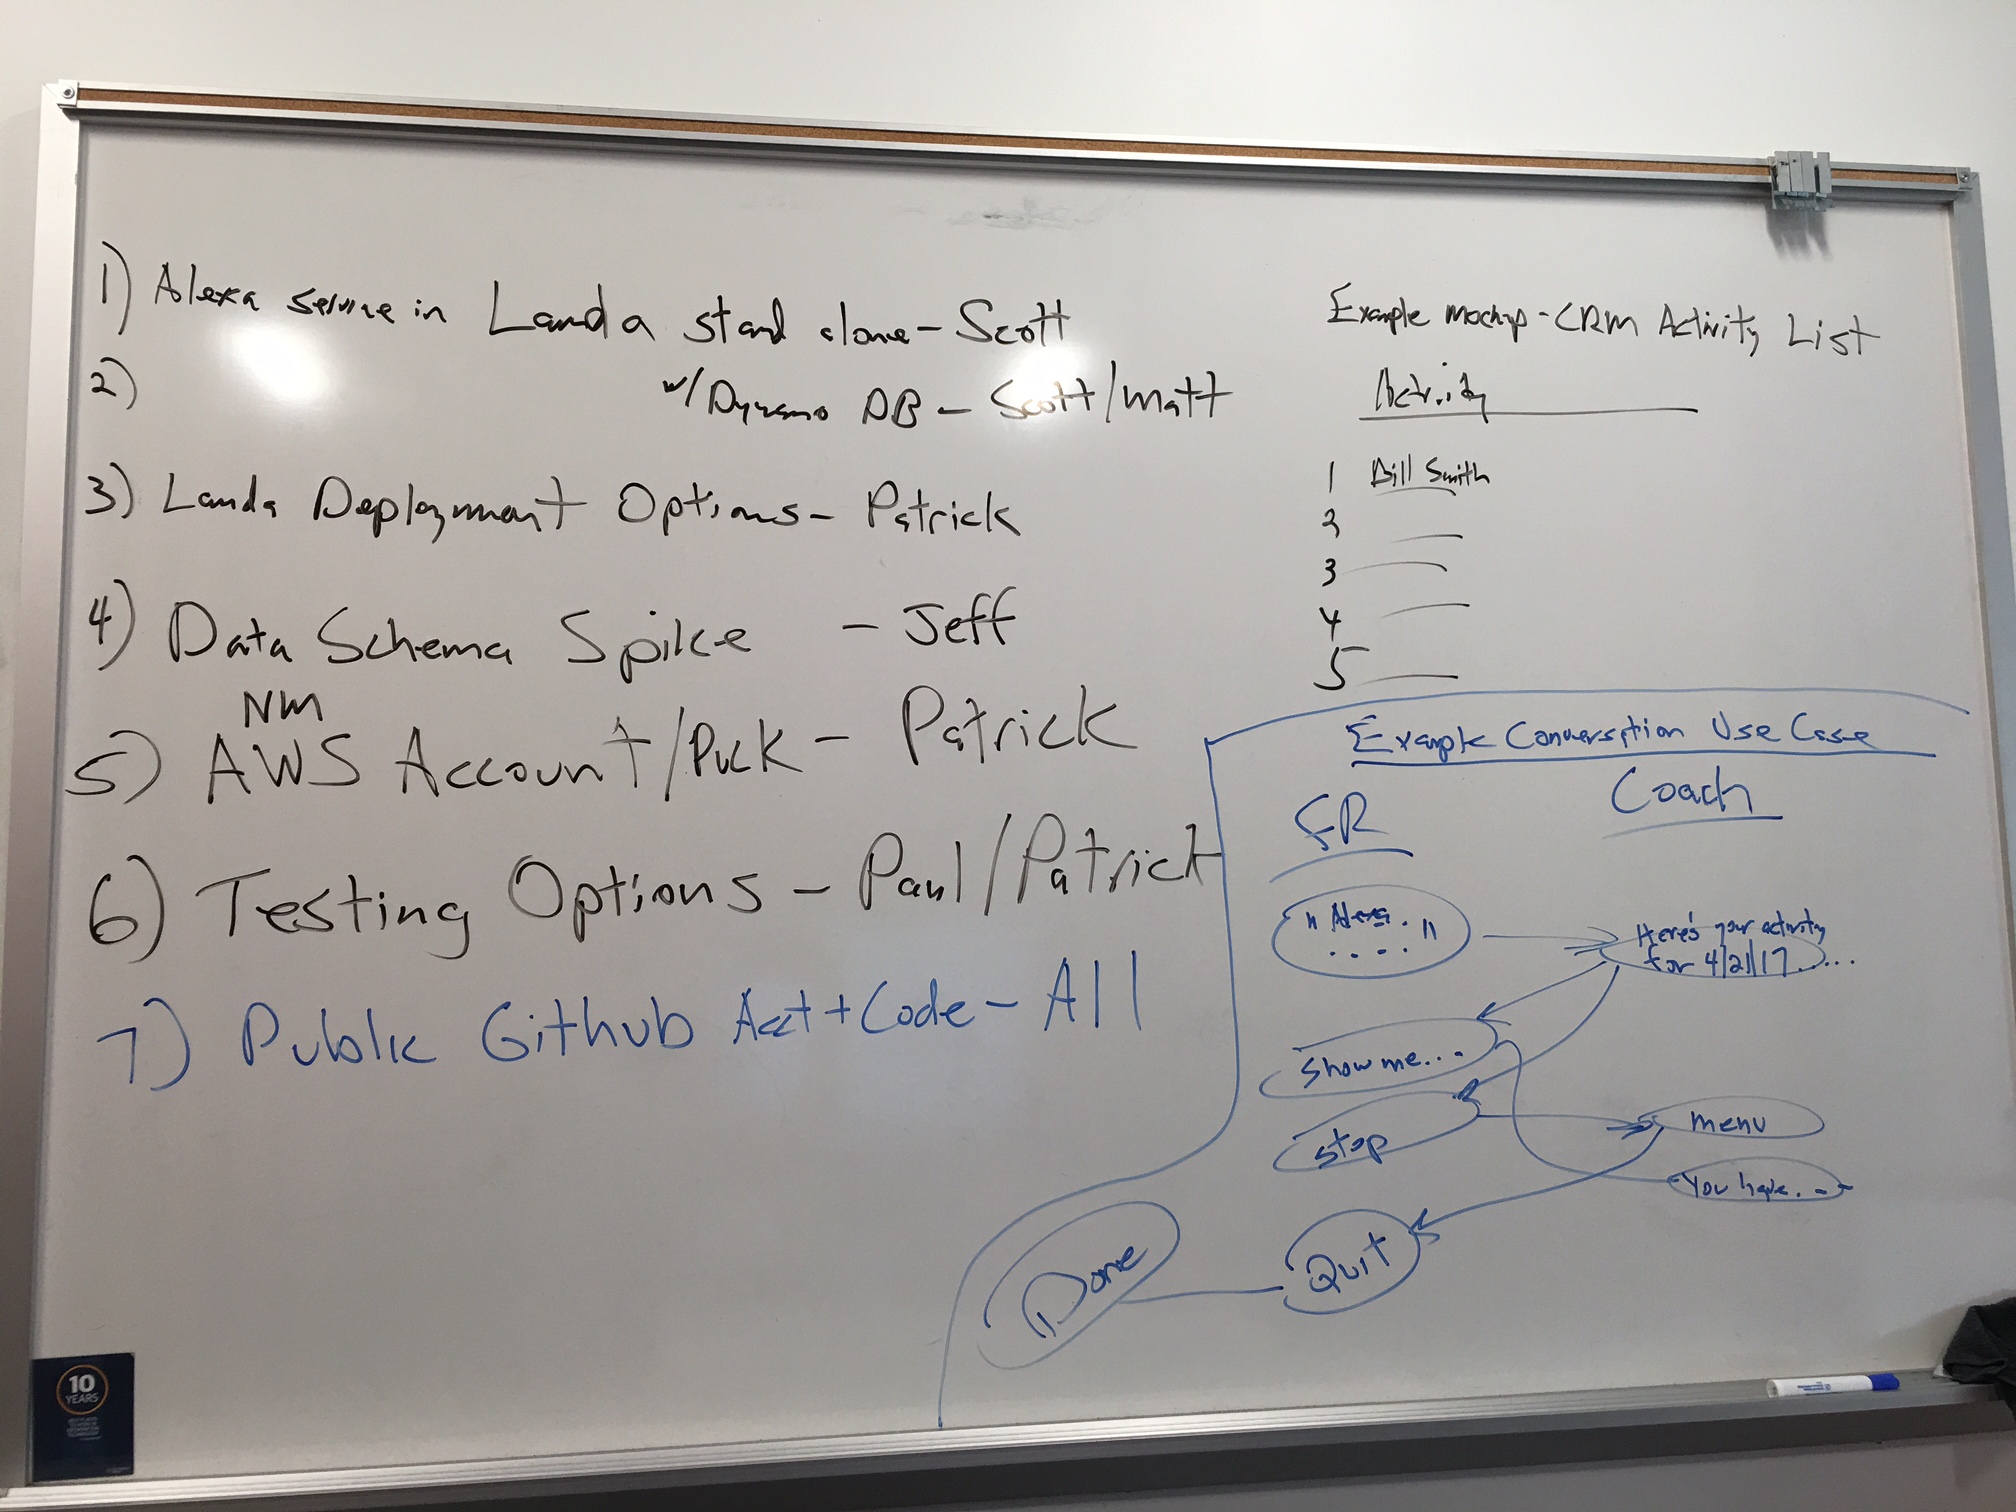 1) Alexa service in Landa stand alone - Scott
2) w/ Dynamo DB - Scott/Matt
3) Landa Deployment Options - Patrick
4) Data Schema Spike - Jeff
NM
5) AWS Account/Puck - Patrick
6) Testing Options - Paul/Patrick
7) Public Github Acct + Code - All
Example mockup - CRM Activity List
Activity
1 Bill Smith
2
3
4
5
Example Conversation Use Case
FR
Coach
"Alexa. . . . . ."
Here's your activity
for 4/21/17.....
Show me...
stop
menu
You have...
Quit
Done
10
YEARS